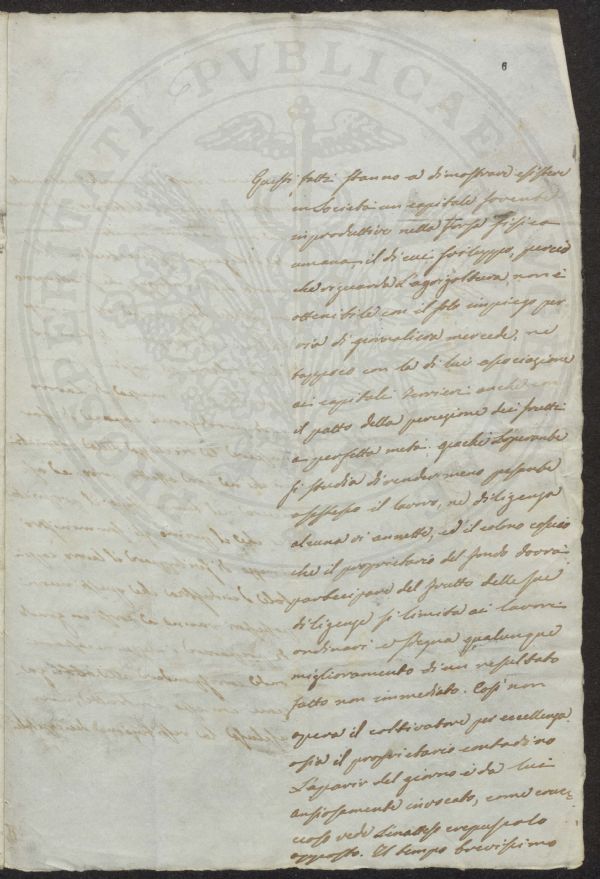 PROSPERITATI PUBLICAE
6
Questi fatti stanno a dimostrare esistere
in Società un capitale sovente
improduttivo nella forza fisica
umana, il di cui sviluppo, perciò
che riguarda l'agricoltura non è
ottenibile con il solo impiego per
via di giornaliera mercede, nè
tappoco con la di lui associazione
ai capitali terrieri anche con
il patto della percezione dei frutti
a perfetta metà: giachè l'operante
si studia di render meno pesante
a se stesso il lavoro, nè diligenza
alcuna vi annette, ed il colono conscio
che il proprietario del fondo dovrà
partecipare del frutto delle sue
diligenze si limita ai lavori
ordinari e sdegna qualunque
miglioramento di un resultato
fatto non immediato. Così non
opera il coltivatore per eccellenza
ossia il proprietario contadino
L'aparir del giorno è da lui
ansiosamente invocato, come cruc=
cioso vede l'inatteso crepuscolo
opposto. Il tempo brevissimo